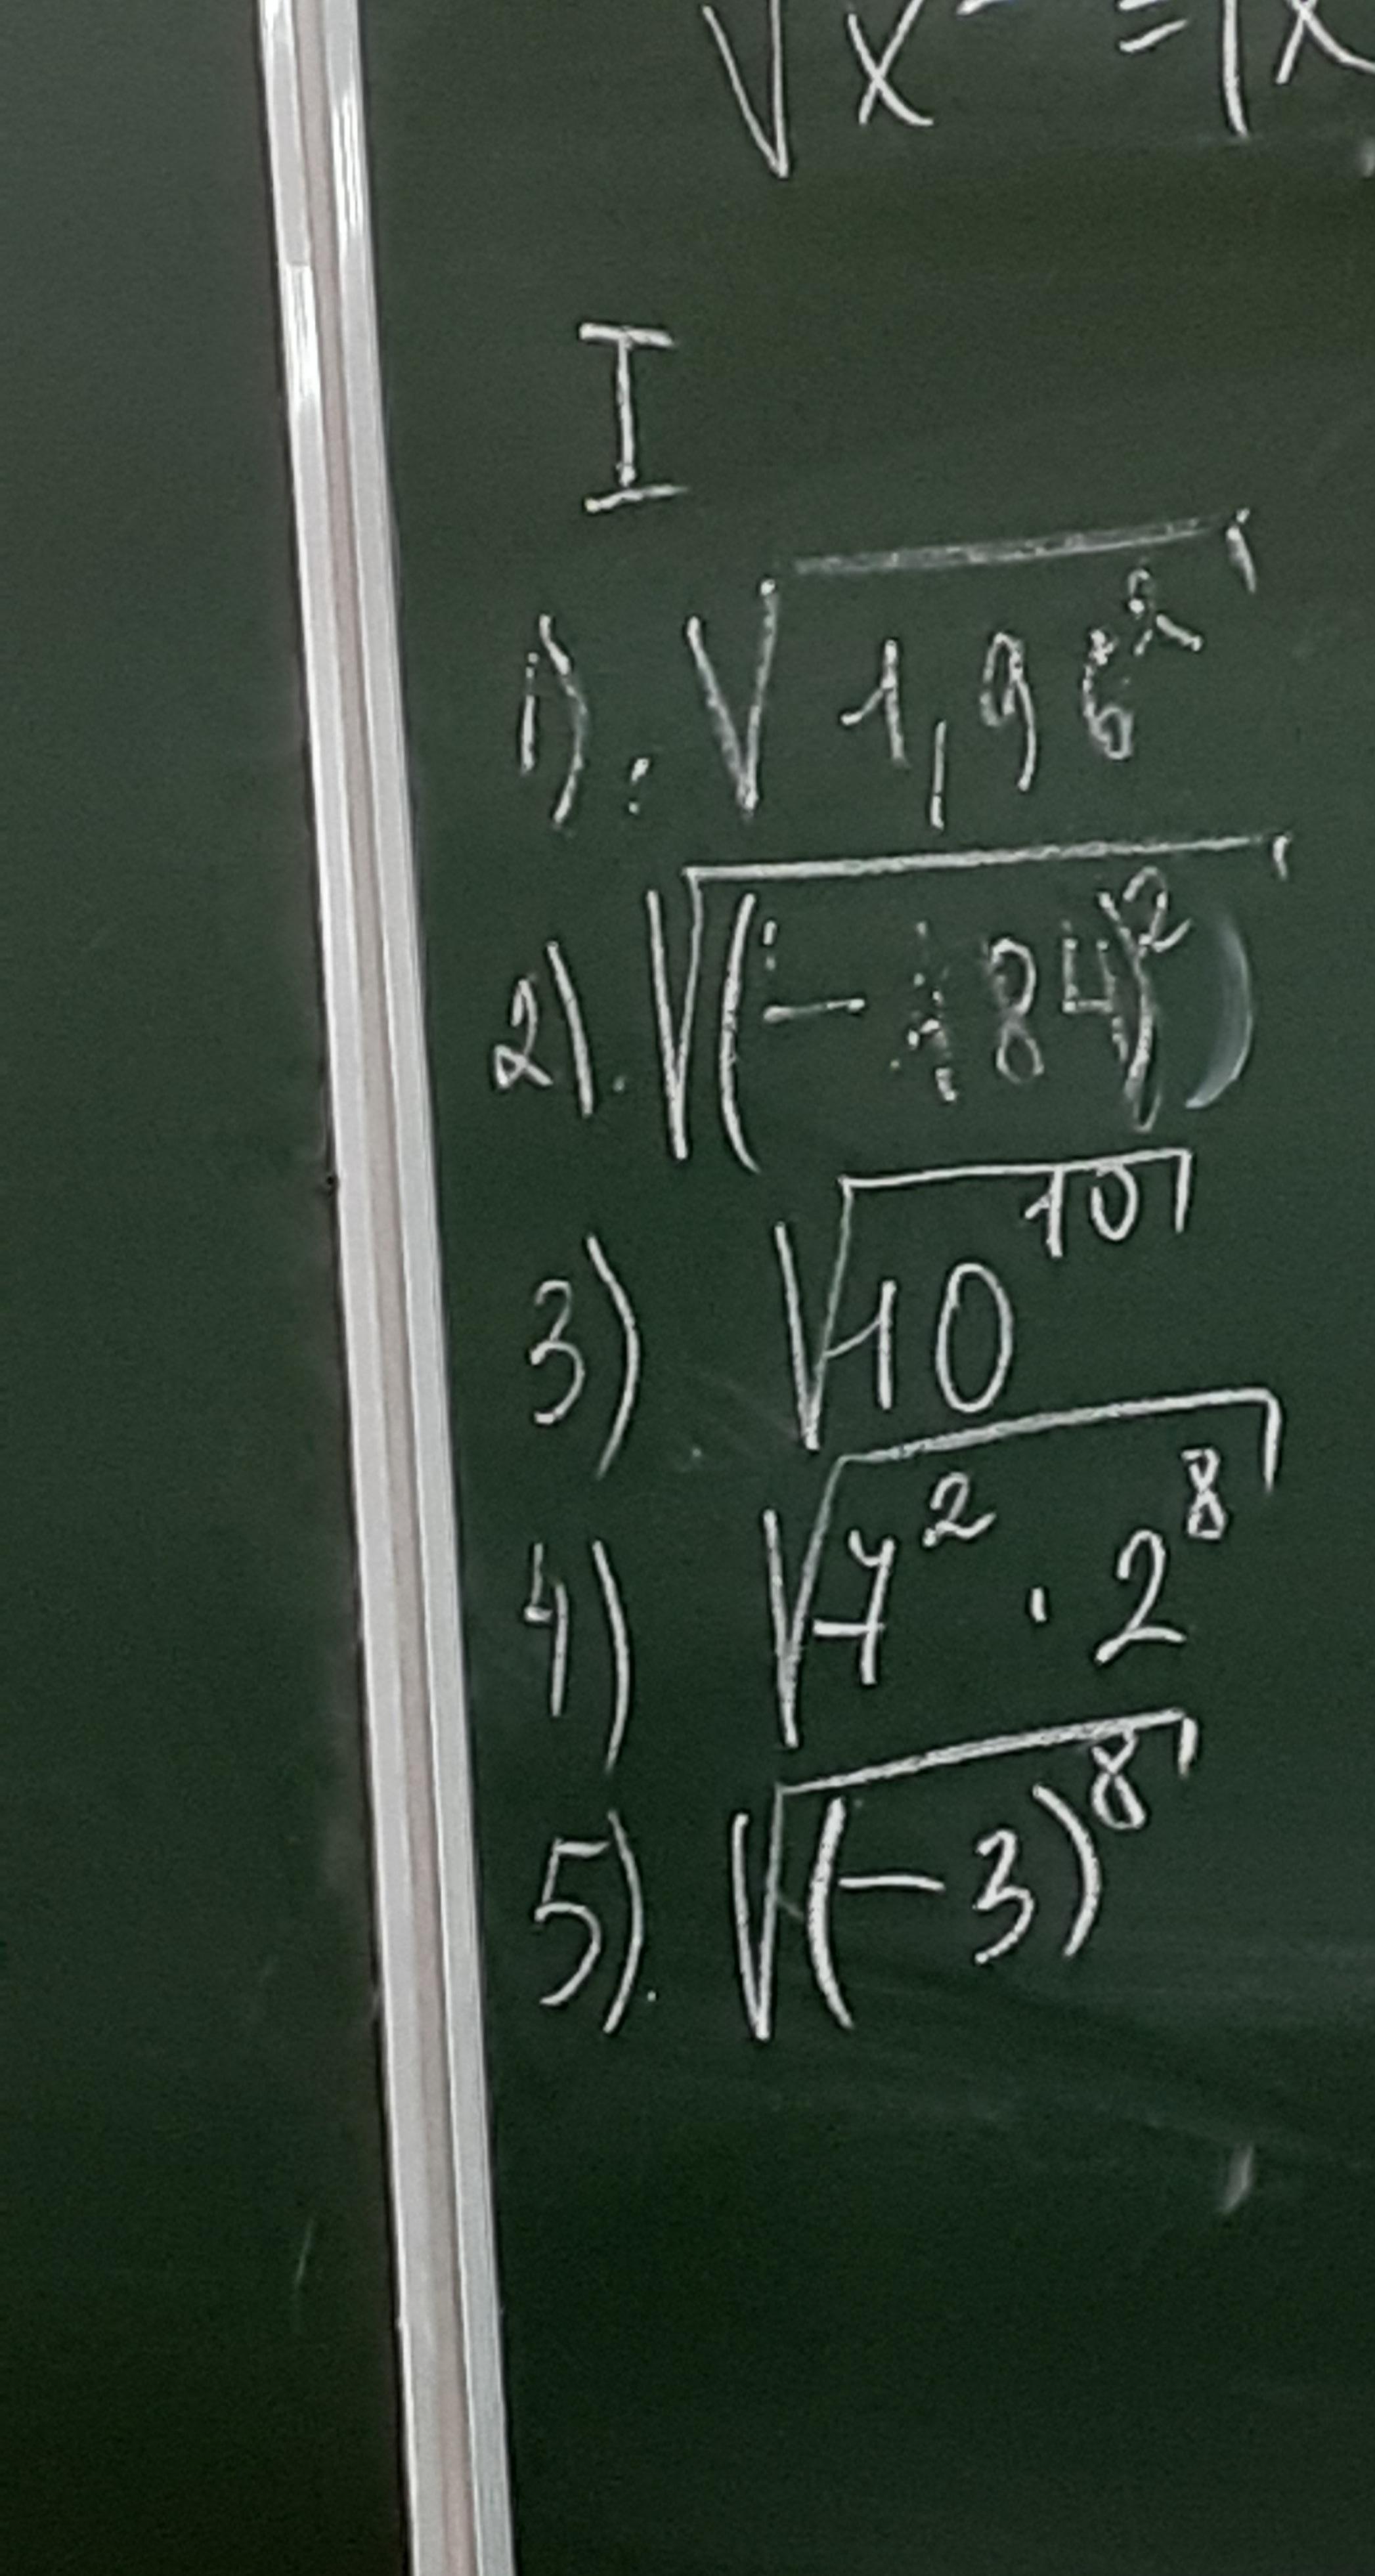 √x² = |x
I
1). √1,96²
2). √(-184)²
3) √10¹⁰
4) √7² · 2⁸
5). √(-3)⁸